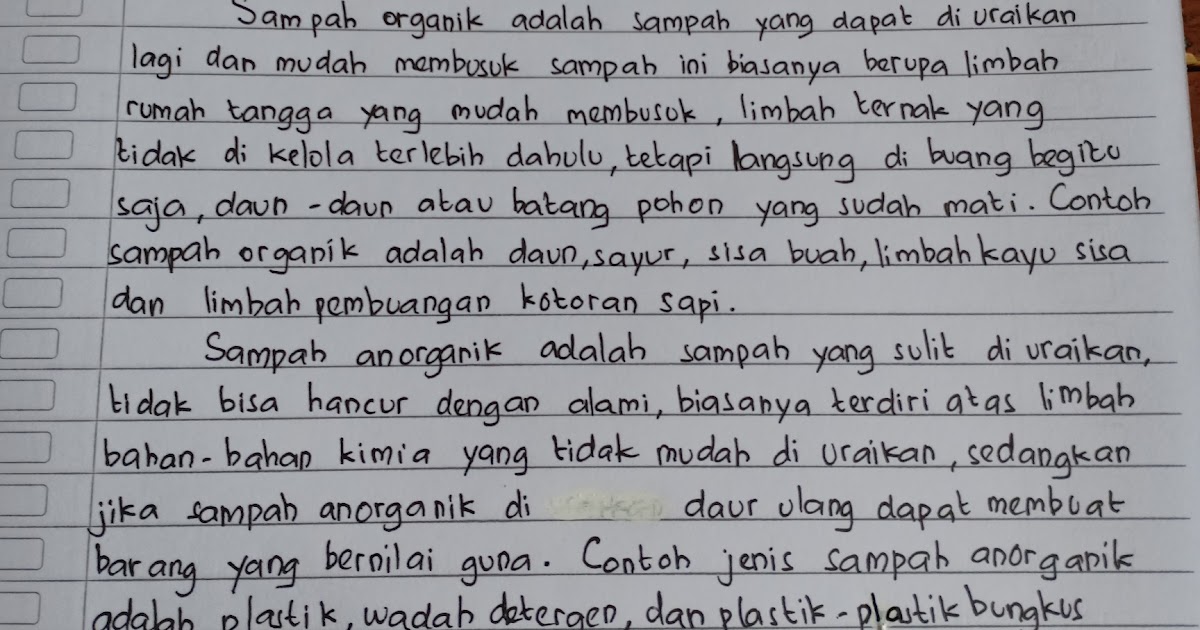 Sampah organik adalah sampah yang dapat di uraikan
lagi dan mudah membusuk sampah ini biasanya berupa limbah
rumah tangga yang mudah membusuk, limbah ternak yang
tidak di kelola terlebih dahulu, tetapi langsung di buang begitu
saja, daun-daun atau batang pohon yang sudah mati. Contoh
sampah organik adalah daun, sayur, sisa buah, limbah kayu sisa
dan limbah pembuangan kotoran sapi.
Sampah anorganik adalah sampah yang sulit di uraikan,
tidak bisa hancur dengan alami, biasanya terdiri atas limbah
bahan-bahan kimia yang tidak mudah di uraikan, sedangkan
jika sampah anorganik di daur ulang dapat membuat
barang yang bernilai guna. Contoh jenis sampah anorganik
adalah plastik, wadah detergen, dan plastik-plastik bungkus